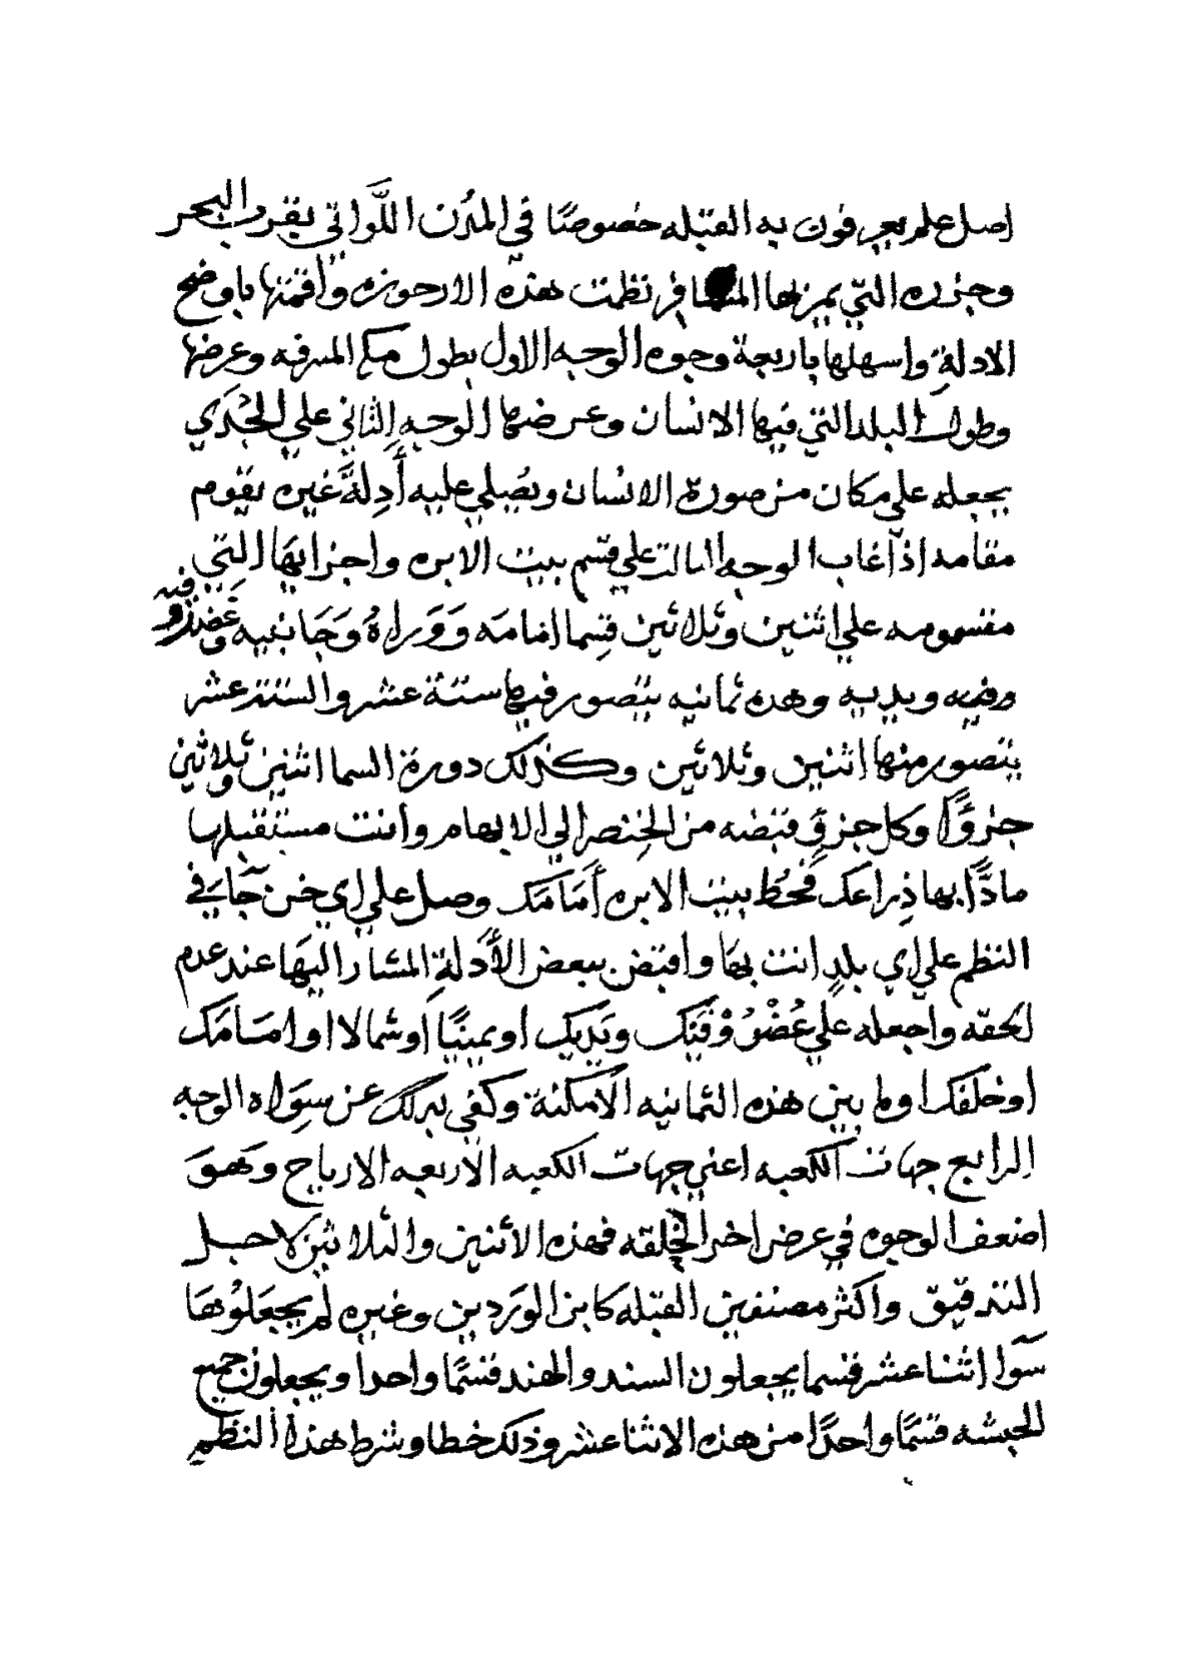 اصل علم يعرفون به القبله خصوصًا في المدُن اللَّواتي بقرب البحر
وجزره التي يمر بها المسافر نظمت هذه الارجوزه واقمتها باوضح
الادلةِ واسهلها باربعة وجوه الوجه الاول بطول مكه المشرفه وعرضها
وطول البلد التي فيها الانسان وعرضها الوجه الثاني علي الجَدَي
يجعله علي مكان من صورة الانسان ويُصَلي عليه أَدِلةَّ غيره يقوم
مقامه اذا غاب الوجه الثالث علي قسم بيت الابره واجزايهَا التي
مقسومه علي اثنين وثلاثين قسِما امامَه وَوَراهُ وَجَانبيه وعَضديه
وفيه ويديه وهذه ثمانيه يتصور فيها ستة عشر والستة عشر
يتصور منها اثنين وثلاثين وكذلك دورة السما اثنين وثلاثين
جزوًا وكل جزؤٍ قبضه من الخِنصر الي الابهام وانت مستقبلها
مادًّا بها ذِراعك فَحُط بيت الابره أَمَامَك وصل علي اي خن جَاءَ في
النظم علي اي بلدٍ انت بهَا واقبض ببعض الأَدلةِ المشار اليهَا عند عدم
لحَقه واجعله علي عُضْوُ وْفَيَك ويَديك او يمينًا او شمالا او امَامَك
او خلفك او ما بين هذه الثمانيه الامكنة وكفي بذلك عن سِوَاه الوجه
الرابع جهات الكعبه اعني جهات الكعبه الاربعه الارياح وَهوَ
اضعف الوجوه في عرض اخر الخلقه فهذه الاثنين والثلاثين لاجل
التدقيق واكثر مصنفين القبله كابن الوَردين وغيره لم يجعَلوُهَا
سَوَا اثنا عشر قسما يجعلون السند والهند قسمًا واحدا ويجعلون جميع
الحبشه قسمًا واحدًا من هذه الاثنا عشر وذلك خطا وشرط هذا النظم